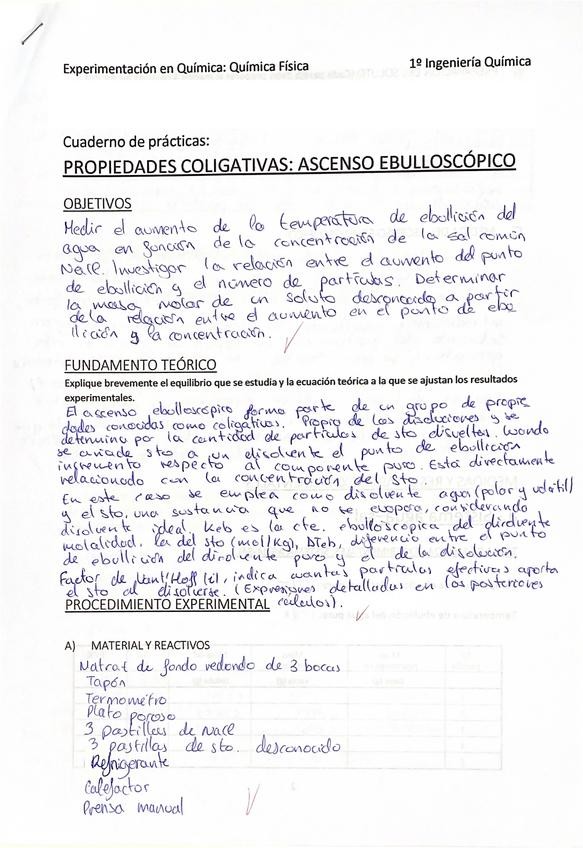 Experimentación en Química: Química Física 1º Ingeniería Química
Cuaderno de prácticas:
PROPIEDADES COLIGATIVAS: ASCENSO EBULLOSCÓPICO
OBJETIVOS
Medir el aumento de la temperatura de ebullición del
agua en función de la concentración de la sal común
NaCl. Investigar la relación entre el aumento del punto
de ebullición y el número de partículas. Determinar
la masa molar de un soluto desconocido a partir
de la relación entre el aumento en el punto de ebu
llición y la concentración.
FUNDAMENTO TEÓRICO
Explique brevemente el equilibrio que se estudia y la ecuación teórica a la que se ajustan los resultados
experimentales.
El ascenso ebulloscópico forma parte de un grupo de propie
dades conocidas como coligativas. Propia de las disoluciones y se
determina por la cantidad de partículas de sto disueltas. Cuando
se añade sto a un disolvente el punto de ebullición
incrementa respecto al componente puro. Está directamente
relacionado con la concentración del sto.
En este caso se emplea como disolvente agua (polar y volátil)
y el sto, una sustancia que no se evapora, considerando
disolvente ideal. Keb es la cte. ebulloscópica del disolvente
molalidad, la del sto (mol/Kg), DTeb, diferencia entre el punto
de ebullición del disolvente puro y el de la disolución.
Factor de Vant'Hoff (i), indica cuantas partículas efectivas aporta
el sto al disolverse. (Expresiones detalladas en los posteriores
PROCEDIMIENTO EXPERIMENTAL cálculos).
A) MATERIAL Y REACTIVOS
Matraz de fondo redondo de 3 bocas
Tapón
Termómetro
Plato poroso
3 pastillas de NaCl
3 pastillas de sto. desconocido
Refrigerante
Calefactor
Prensa manual